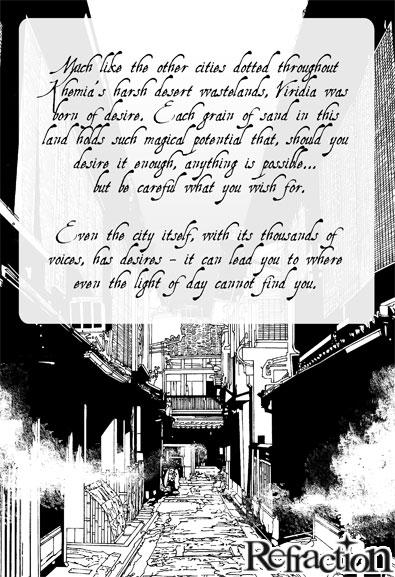 Much like the other cities dotted throughout
Khemia's harsh desert wastelands, Viridia was
born of desire. Each grain of sand in this
land holds such magical potential that, should you
desire it enough, anything is possible...
but be careful what you wish for.
Even the city itself, with its thousands of
voices, has desires - it can lead you to where
even the light of day cannot find you.
Refraction